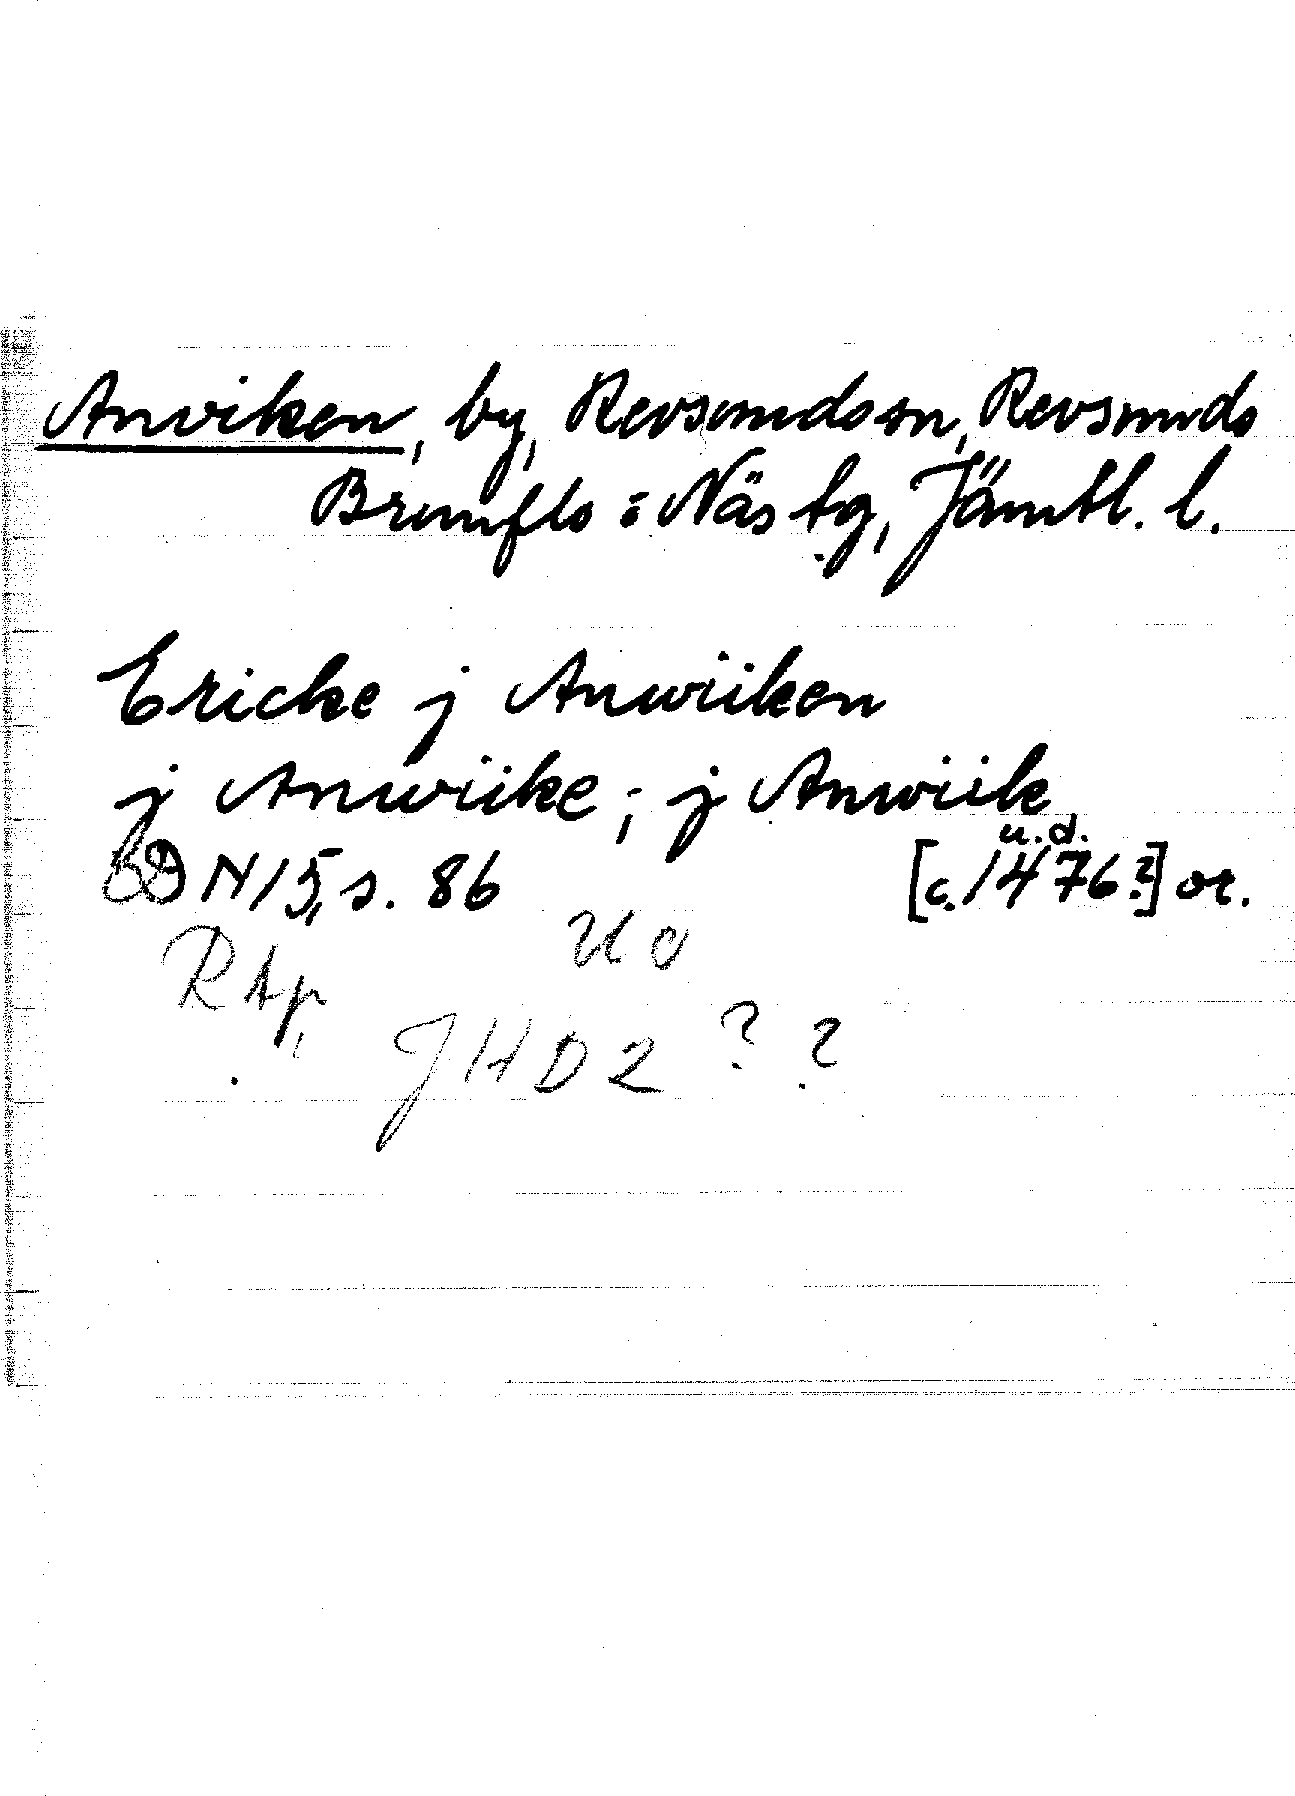 Anviken, by, Revsunds sn, Revsunds
Brunflo o Näs tg, Jämtl. l.
Ericke j Anwiiken
j Anwiike; j Anwiik
DN 15, s. 86 [c. 1476?] u.d. or.
R tp,
JHD 2 ? ?